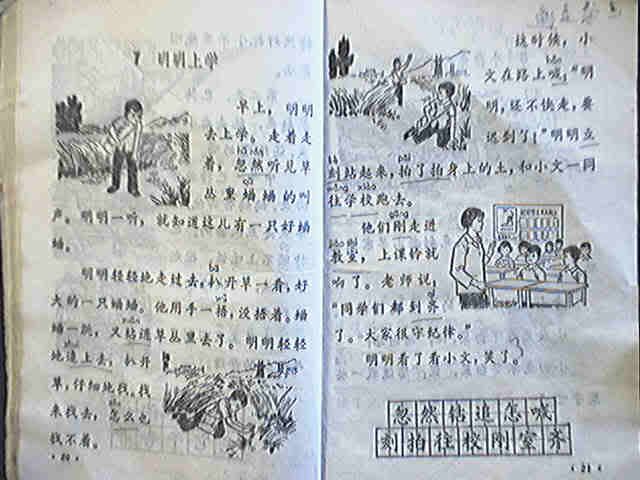 7 明明上学
早上，明明
去上学，走着走
着，忽然听见草
丛里蛐蛐的叫
声。明明一听，就知道这儿有一只好蛐
蛐。
明明轻轻地走过去，扒开草一看，好
大的一只蛐蛐。他用手一捂，没捂着。蛐
蛐一跳，又钻进草丛里去了。明明轻轻
地追上去，扒开
草，仔细地找。找
来找去，怎么也
找不着。
·20·
这时候，小
文在路上喊："明
明，还不快走，要
迟到了！"明明立
刻站起来，拍了拍身上的土，和小文一同
往学校跑去。
他们刚走进
教室，上课铃就
响了。老师说：
"同学们都到齐
了。大家很守纪律。"
明明看了看小文，笑了。
忽然钻追怎喊
刻拍往校刚室齐
·21·